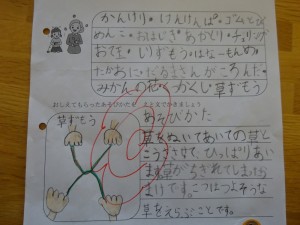 かんけり。けんけんぱ。ゴムとび
めんこ。おはじき。あやとり。チェーリング
おて玉。しりずもう。はないちもんめ。
たかおに。だるまさんがころんだ。
みかんの花。かくれんぼ。草ずもう
おしえてもらったあそびかたを絵と文でかきましょう
草ずもう
あそびかた
草をぬいてあいての草と
こうささせて、ひっぱりあい
ます。草がちぎれてしまったら
まけです。こつはつよそうな
草をえらぶことです。